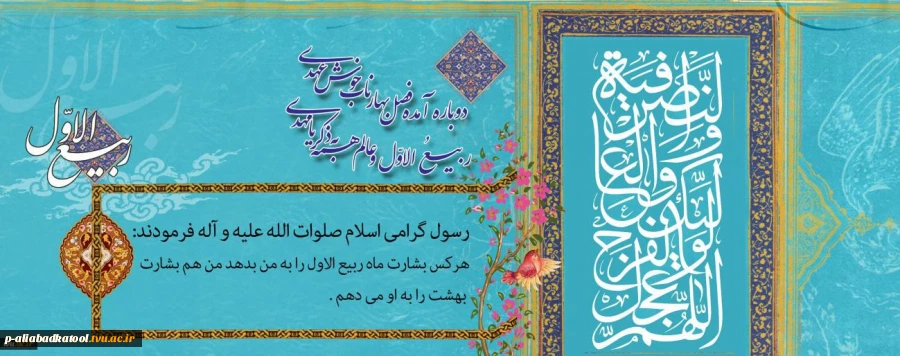 دوباره آمده فصل بهار ناب خوش عهدی
ربیعُ الاوّل و عالم همه به ذکر یا مهدی
ربیع الاوّل
رسول گرامی اسلام صلوات الله علیه و آله فرمودند:
هرکس بشارت ماه ربیع الاول را به من بدهد من هم بشارت
بهشت را به او می دهم .
اللهم عجل لولیک الفرج والعافیة والنصر
p-aliabadkatool.tvu.ac.ir